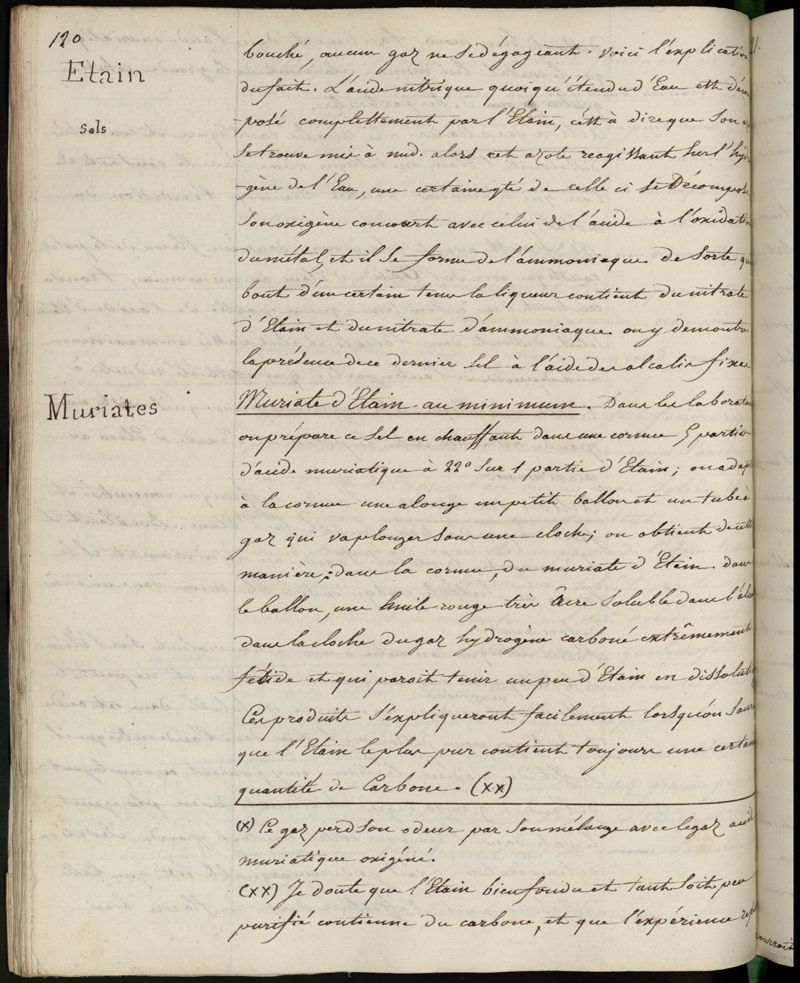 120
Etain
Sels
bouché, aucun gaz ne se dégageant. voici l'explication
du fait. L'acide nitrique quoiqu'étendu d'Eau est décom
-posé complettement par l'Etain, c'est à dire que son
se trouve mis à nud. alors cet azote reagissant sur l'hydro
-gène de l'Eau, une certaine qté de celle ci se Décompose
Son oxigène concourt avec celui de l'acide à l'oxidation
du métal, et il se forme de l'ammoniaque de sorte qu
bout d'un certain tems la liqueur contient du nitrate
d'Etain et du nitrate d'ammoniaque. on y demontre
la présence de ce dernier sel à l'aide des alcalis fixes
Muriates
Muriate d'Etain au minimum. Dans les laboratoi
on prépare ce sel en chauffant dans une cornue 5 parties
d'acide muriatique à 22° sur 1 partie d'Etain; on adap
à la cornue une alonge un petit ballon et un tube à
gaz qui va plonger sous une cloche; on obtient de cette
manière; dans la cornue, du muriate d'Etain. dans
le ballon, une huile rouge très âcre soluble dans l'alco
dans la cloche du gaz hydrogène carboné extrêmement
fétide et qui paroit tenir un peu d'Etain en dissolution
Ces produits s'expliqueront facilement lorsqu'on saura
que l'Etain le plus pur contient toujours une certaine
quantité de Carbone. (xx)
(x) Ce gaz perd son odeur par son mélange avec le gaz acide
muriatique oxigéné.
(xx) Je doute que l'Etain bien fondu et tant soit peu
purifié contienne du carbone, et que l'expérience
pourroit